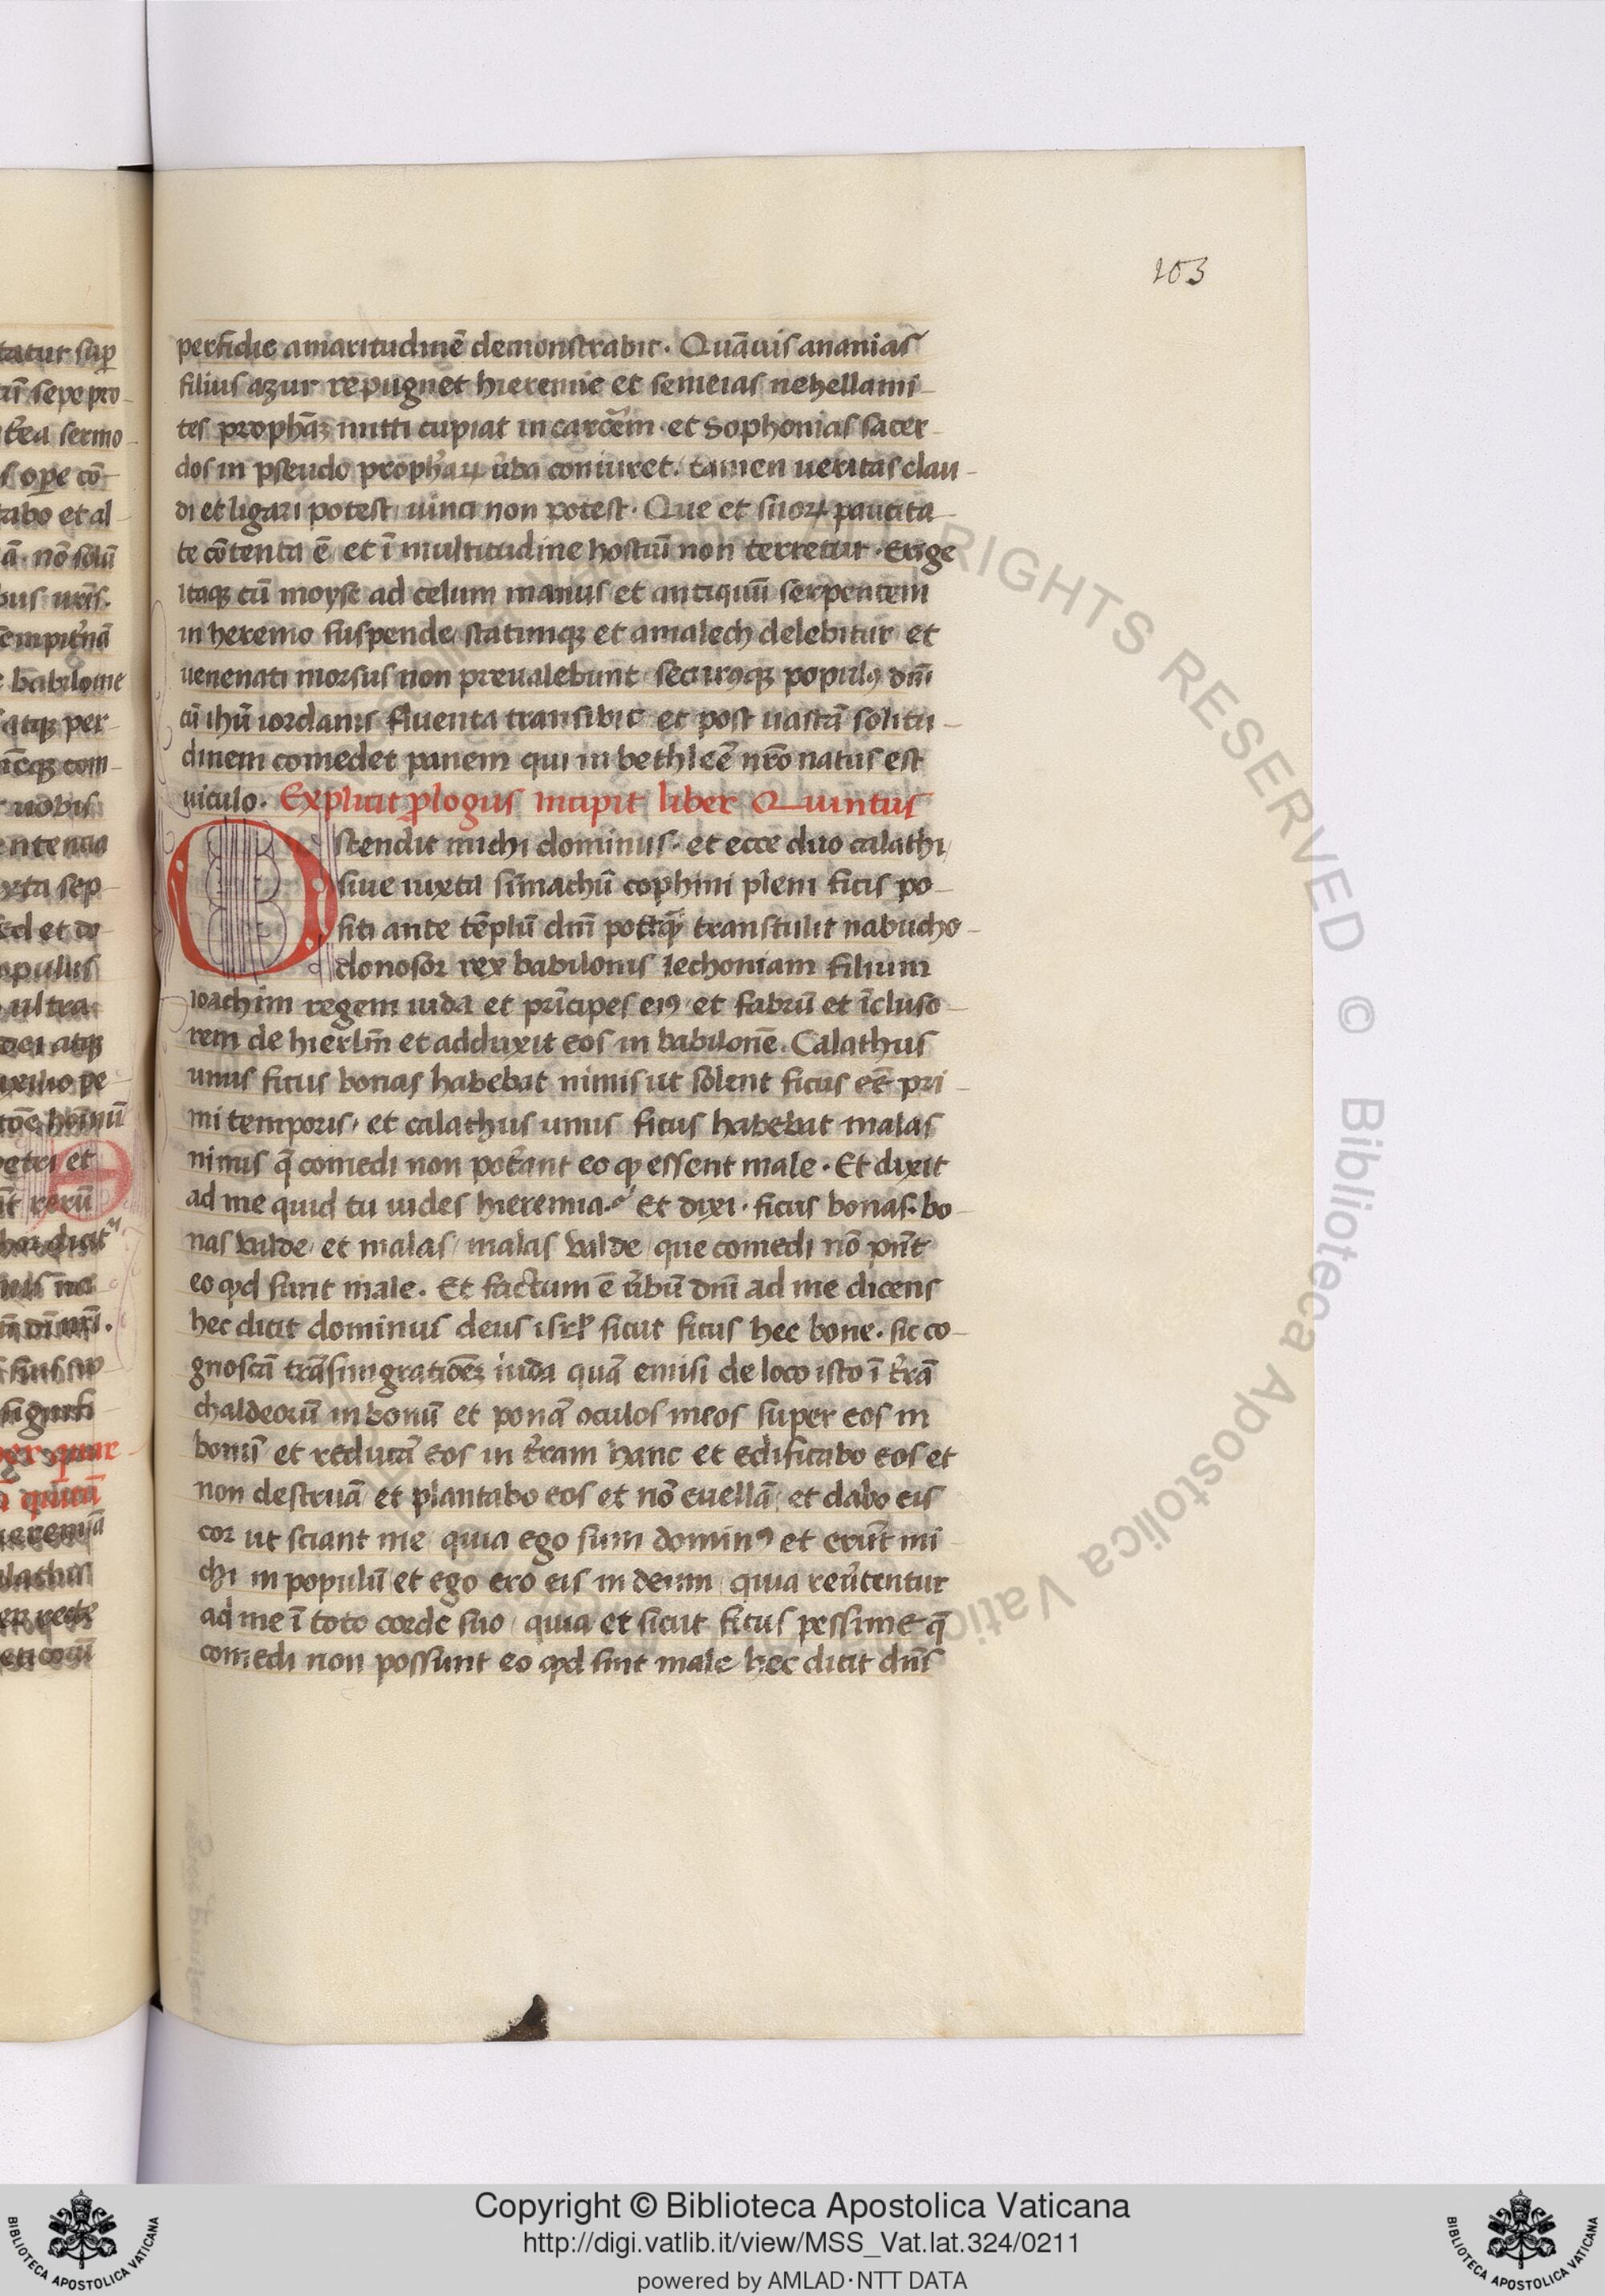 103
perfidie amaritudinē demonstrabit. Quāuis ananias
filius azur repugnet hieremie et semeias nehellami-
tes prophāꝫ mitti cupiat in carcēm. et Sophonias sacer-
dos in pseudo prophaꝝ ūba coniuret. tamen ueritas clau-
di et ligari potest, uinci non potest. Que et suoꝝ paucita-
te cōtenta ē et ī multitudine hostiū non terretur. Erige
itaqꝫ cū moyse ad celum manus et antiquū serpentem
in heremo suspende, statimqꝫ et amalech delebitur et
uenenati morsus non preualebunt securꝰqꝫ populꝰ dnī
cū ihū iordanis fluenta transibit et post uastā solitu-
dinem comedet panem qui in bethleē nr̄o natus est
uiculo. Explicit ꝓlogus incipit liber Quintus
Ostendit michi dominus. et ecce duo calathi,
siue iuxta simachū cophini pleni ficis po-
siti ante tēplū dnī postꝙ̄ transtulit nabucho-
donosor rex babilonis Iechoniam filium
ioachim regem iuda et prīcipes eiꝰ et fabrū et īcluso-
rem de hierlm̄ et adduxit eos in babilonē. Calathus
unus ficus bonas habebat nimis ut solent ficus eē pri-
mi temporis, et calathus unus ficus habebat malas
nimis q̄ comedi non pot̄ant eo ꝙ essent male. Et dixit
ad me quid tu uides hieremia? Et dixi. ficus bonas. bo-
nas ualde, et malas, malas ualde, que comedi nō pn̄t
eo ꝙd sunt male. Et factum ē ūbū dnī ad me dicens
hec dicit dominus deus isrł sicut ficus hec bone. sic co-
gnoscā trāsmigrationēꝫ iuda quā emisi de loco isto ī t̄rā
chaldeorū in bonū et ponā oculos meos super eos in
bonū et reducā eos in t̄ram hanc et edificabo eos et
non destruā et plantabo eos et nō euellā, et dabo eis
cor ut sciant me quia ego sum dominꝰ et erūt mi-
chi in populū et ego ero eis in deum quia reūtentur
ad me ī toto corde suo, quia et sicut ficus pessime q̄
comedi non possunt eo ꝙd sint male hec dicit dn̄s
RIGHTS RESERVED © Biblioteca Apostolica Vaticana
Copyright © Biblioteca Apostolica Vaticana
http://digi.vatlib.it/view/MSS_Vat.lat.324/0211
powered by AMLAD·NTT DATA
BIBLIOTECA APOSTOLICA VATICANA
BIBLIOTECA APOSTOLICA VATICANA